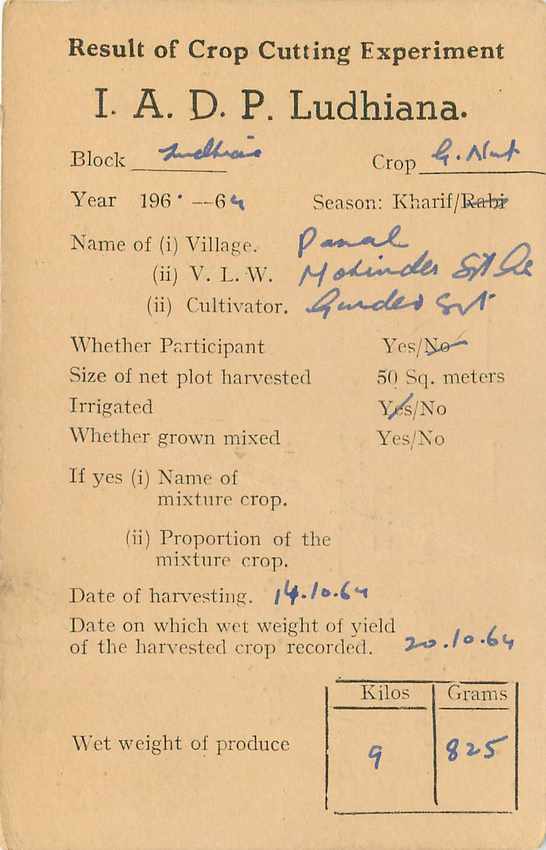 Result of Crop Cutting Experiment
I. A. D. P. Ludhiana.
Block Crop G. Nut
Year 196 —64 Season: Kharif/Rabi
Name of (i) Village.
(ii) V. L. W. Mohinder
(ii) Cultivator. Gurdev
Whether Participant Yes/No
Size of net plot harvested 50 Sq. meters
Irrigated Yes/No
Whether grown mixed Yes/No
If yes (i) Name of
mixture crop.
(ii) Proportion of the
mixture crop.
Date of harvesting. 14.10.64
Date on which wet weight of yield
of the harvested crop recorded. 20.10.64
Kilos Grams
Wet weight of produce 9 825